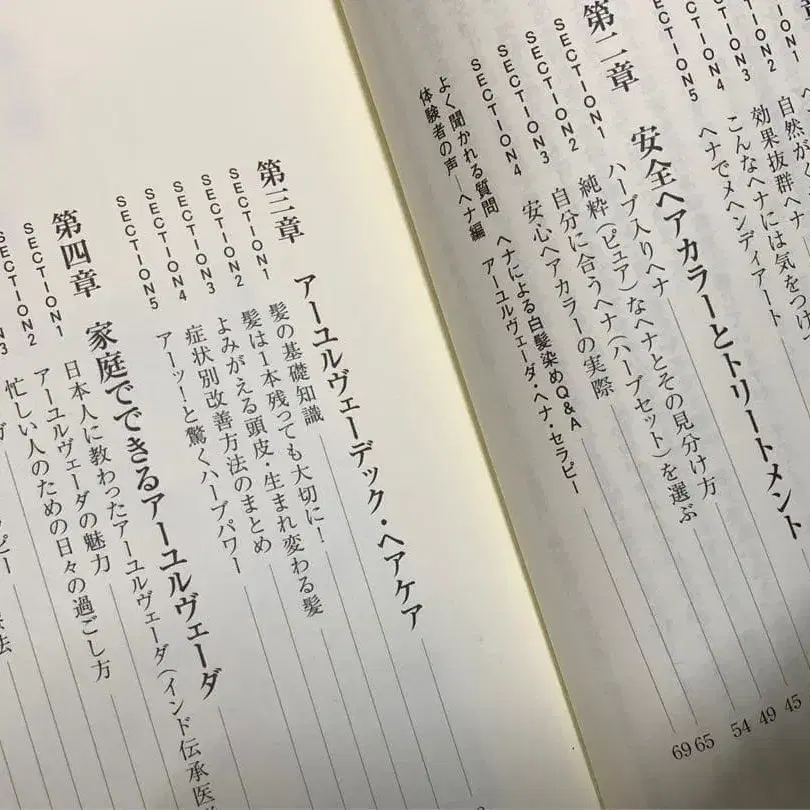 SECTION2
自然が
SECTION3
効果抜群ヘナ
SECTION4
こんなヘナには気をつけて
SECTION5
ヘナでメヘンディアート
第二章 安全ヘアカラーとトリートメント
SECTION1
ハーブ入りヘナ
45
SECTION2
純粋(ピュア)なヘナとその見分け方
49
SECTION3
自分に合うヘナ(ハーブセット)を選ぶ
54
SECTION4
安心ヘアカラーの実際
65
よく聞かれる質問 ヘナによる白髪染めQ&A
69
体験者の声—ヘナ編 アーユルヴェーダ・ヘナ・セラピー
第三章 アーユルヴェーディック・ヘアケア
SECTION1
髪の基礎知識
SECTION2
髪は1本残っても大切に!
SECTION3
よみがえる頭皮・生まれ変わる髪
SECTION4
症状別改善方法のまとめ
SECTION5
アーッ!と驚くハーブパワー
第四章 家庭でできるアーユルヴェーダ
SECTION1
日本人に教わったアーユルヴェーダ(インド伝承医学
SECTION2
アーユルヴェーダの魅力
忙しい人のための日々の過ごし方